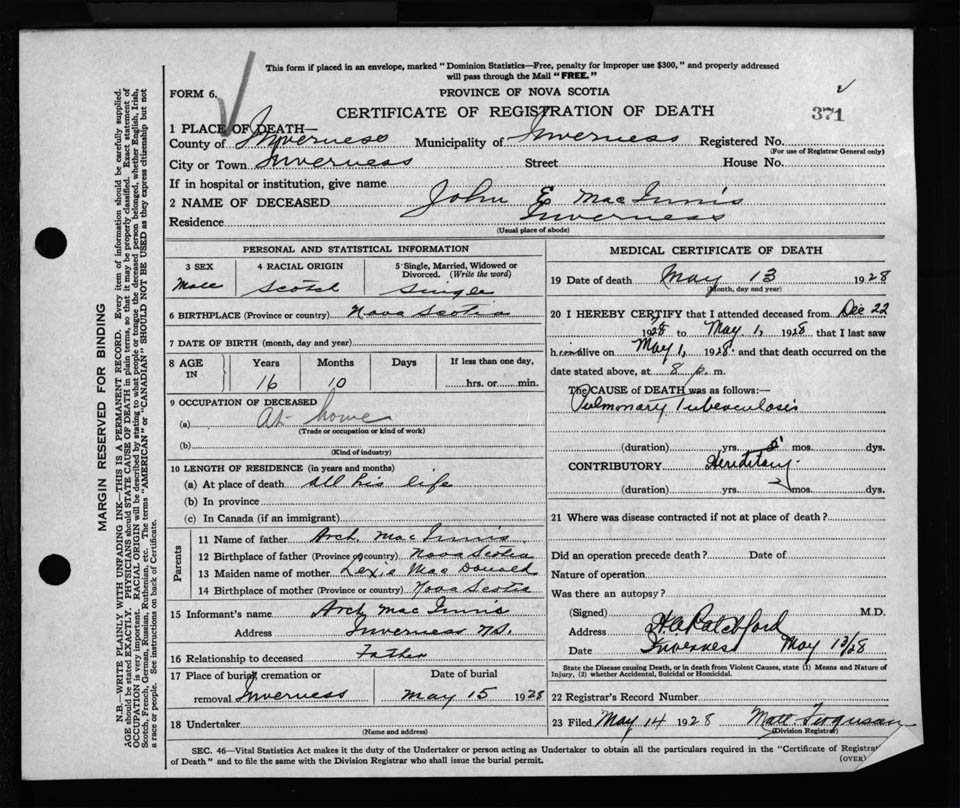 This form if placed in an envelope, marked "Dominion Statistics—Free, penalty for improper use $300," and properly addressed
will pass through the Mail "FREE."
FORM 6.
PROVINCE OF NOVA SCOTIA
CERTIFICATE OF REGISTRATION OF DEATH
371
1 PLACE OF DEATH—
County of Inverness Municipality of Inverness Registered No.
(For use of Registrar General only)
City or Town Inverness Street House No.
If in hospital or institution, give name
2 NAME OF DECEASED John E MacInnis
Residence Inverness
(Usual place of abode)
MARGIN RESERVED FOR BINDING
N.B.—WRITE PLAINLY, WITH UNFADING INK—THIS IS A PERMANENT RECORD. Every item of information should be carefully supplied.
AGE should be stated EXACTLY. PHYSICIANS should STATE CAUSE OF DEATH in plain terms, so that it may be properly classified. Exact statement of
OCCUPATION is very important. RACIAL ORIGIN will be described by stating to what people or tongue the deceased person belonged, whether English, Irish,
Scotch, French, German, Russian, Ruthenian, etc. The terms "AMERICAN" or "CANADIAN" SHOULD NOT BE USED as they express citizenship but not
a race or people. See instructions on back of Certificate.
PERSONAL AND STATISTICAL INFORMATION
3 SEX
Male
4 RACIAL ORIGIN
Scotch
5 Single, Married, Widowed or
Divorced. (Write the word)
Single
6 BIRTHPLACE (Province or country) Nova Scotia
7 DATE OF BIRTH (month, day and year)
8 AGE IN
Years Months Days If less than one day,
16 10 hrs. or min.
9 OCCUPATION OF DECEASED
(a) At home
(Trade or occupation or kind of work)
(b)
(Kind of industry)
10 LENGTH OF RESIDENCE (in years and months)
(a) At place of death all his life
(b) In province
(c) In Canada (if an immigrant)
Parents
11 Name of father Arch. MacInnis
12 Birthplace of father (Province or country) Nova Scotia
13 Maiden name of mother Lexie MacDonald
14 Birthplace of mother (Province or country) Nova Scotia
15 Informant's name Arch MacInnis
Address Inverness N.S.
16 Relationship to deceased Father
17 Place of burial, cremation or Date of burial
removal Inverness May 15 1928
18 Undertaker
(Name and address)
MEDICAL CERTIFICATE OF DEATH
19 Date of death May 13 1928
(Month, day and year)
20 I HEREBY CERTIFY that I attended deceased from Dec 22
1928 to May 1, 1928 that I last saw
him alive on May 1, 1928 and that death occurred on the
date stated above, at 8 p. m.
The CAUSE of DEATH was as follows:—
Pulmonary Tuberculosis
(duration) yrs. 5 mos. dys.
CONTRIBUTORY Hereditary
(duration) yrs. mos. dys.
21 Where was disease contracted if not at place of death?
Did an operation precede death? Date of
Nature of operation
Was there an autopsy?
(Signed) H.A. Ratchford M.D.
Address Inverness
Date May 13/28
State the Disease causing Death, or in death from Violent Causes, state (1) Means and Nature of
Injury, (2) whether Accidental, Suicidal or Homicidal.
22 Registrar's Record Number
23 Filed May 14 1928 Matt. Ferguson
(Division Registrar)
SEC. 46—Vital Statistics Act makes it the duty of the Undertaker or person acting as Undertaker to obtain all the particulars required in the "Certificate of Registra
of Death" and to file the same with the Division Registrar who shall issue the burial permit.
(OVER)